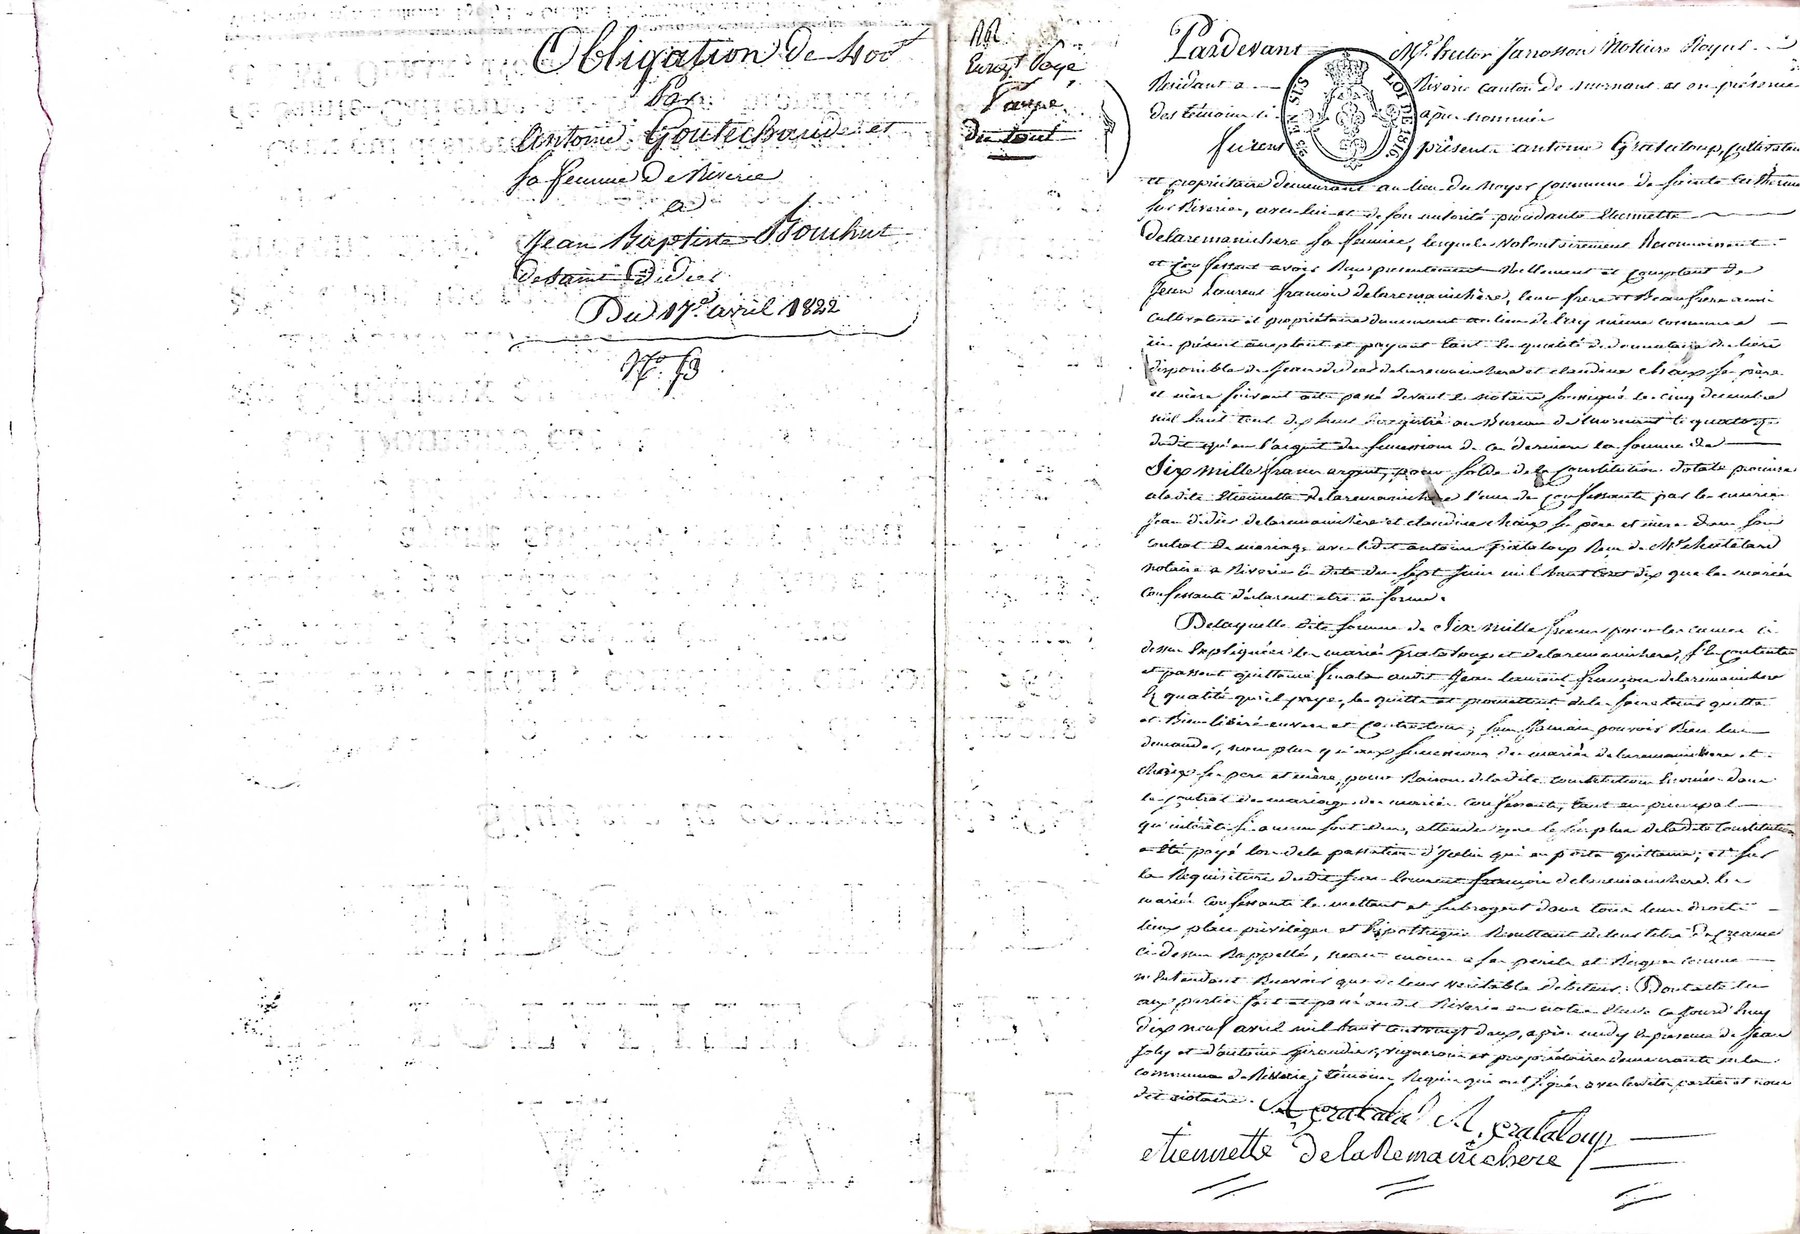 Obligation de 400 f
Par
Antoine Goutechaude et
sa femme de Riverie
a
Jean Baptiste Bouchut
de Saint Didier
Du 17 avril 1822
N° 73
Enregt. Payé
du tout
25 EN SUS
LOI DE 1816.
Pardevant Me. hector Jarrosson Notaire Royal
Résidant a Riverie canton de mornant et en présence
des témoins ci après nommés
furent présents antoine Grataloup, cultivateur
et propriétaire demeurant au lieu du noyer commune de sainte Catherine
sur Riverie, avec lui et de son autorité procédante Etiennette
delaremanichere sa femme, lesquels volontairement Reconnaissent
et Confessent avoir Reçu présentement Réellement et Comptant de
Jean Laurent françois delaremanichere, leur frere et Beau frere aussi
cultivateur et propriétaire demeurant au lieu de même commune
ici présent acceptant et payant tant en qualité de donataire de biens
disponibles de Jean didier delaremanichere et claudine chaize ses père
et mère suivant acte passé devant le notaire soussigné le cinq décembre
mil huit cent dix huit Enregistré au Bureau de mornant le quatorze
dudit qu'en l'acquit des successions de ces derniers la somme de
Six mille francs argent, pour solde de la Constitution dotale promise
a ladite Etiennette delaremanichere l'une des Confessants par les mariés
Jean didier delaremanichere et claudine chaize ses père et mere dans son
contrat de mariage avec ledit antoine Grataloup Reçu de Me chatelard
notaire a Riverie le date du sept Juin mil huit cent dix que les mariés
Confessants déclarent etre en forme.
De laquelle dite somme de Six mille francs pour les causes ci
dessus Expliquées les mariés Grataloup et delaremanichere, s'en contentent
et passent quittance finale audit Jean laurent françois delaremanichere
En qualité qu'il paye, le quittent et promettent de le faire tenir quitte
et Bien libéré envers et Contre tous; sans Jamais pouvoir Rien lui
demander, non plus qu'aux successions des mariés delaremanichere et
chaize ses père et mère, pour Raison de ladite constitution Enoncée dans
le contrat de mariage des mariés confessants, tant en principal
qu'intérêts si aucuns sont dus, attendu que le surplus de ladite Constitution
a été payé lors de la passation d'Icelui qui en porte quittance; et sur
la Requisition dudit Jean laurent françois delaremanichere les
mariés confessants le mettent et subrogent dans tous leurs droits
lieux place privileges et hypotheques Resultant de leurs titres de Créance
ci dessus Rappellés, neanmoins a ses perils et Risques comme
n'Entendant Recevoir que de leurs véritables débiteurs. Dont acte lu
aux parties fait et passé audit Riverie en notre Etude ce Jourd'huy
dix neuf avril mil huit cent vingt deux, après midy En présence de Jean
Joly et d'antoine Girondier, vignerons et propriétaires demeurants en la
commune de Riverie, témoins Requis qui ont signé avec lesdites parties et nous
dit notaire.
A, grataloup
etiennette de la Remanichere